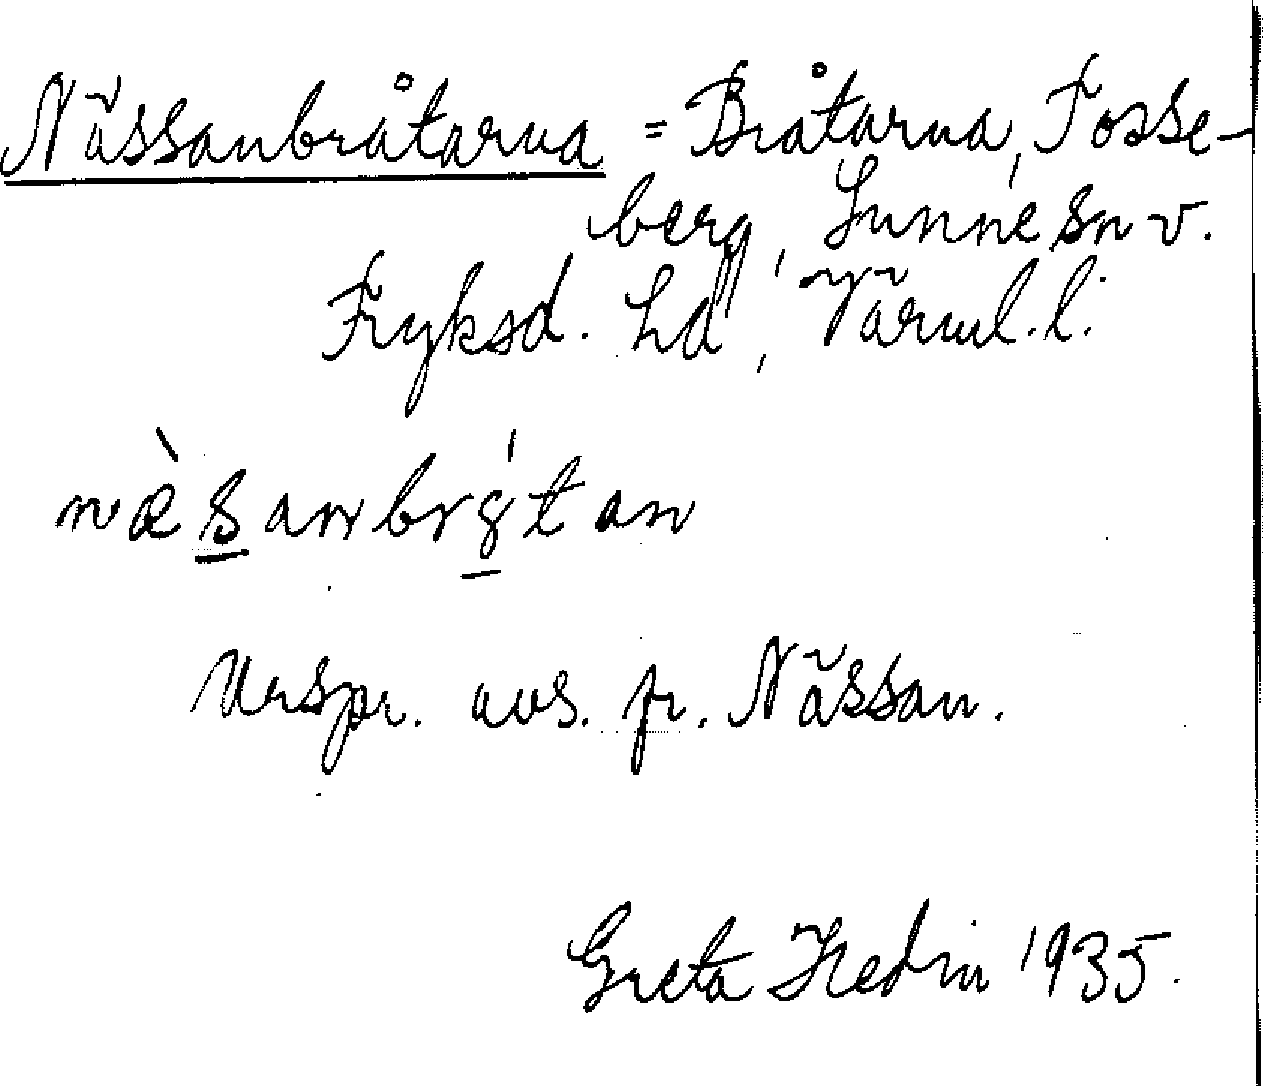 Nässanbråtarna = Bråtarna, Fosse-
berg, Sunne sn v.
Fryksd. hd, Värml. l.
næ̀sanbrǵtan
Urspr. avs. fr. Nässan.
Greta Hedin 1935.